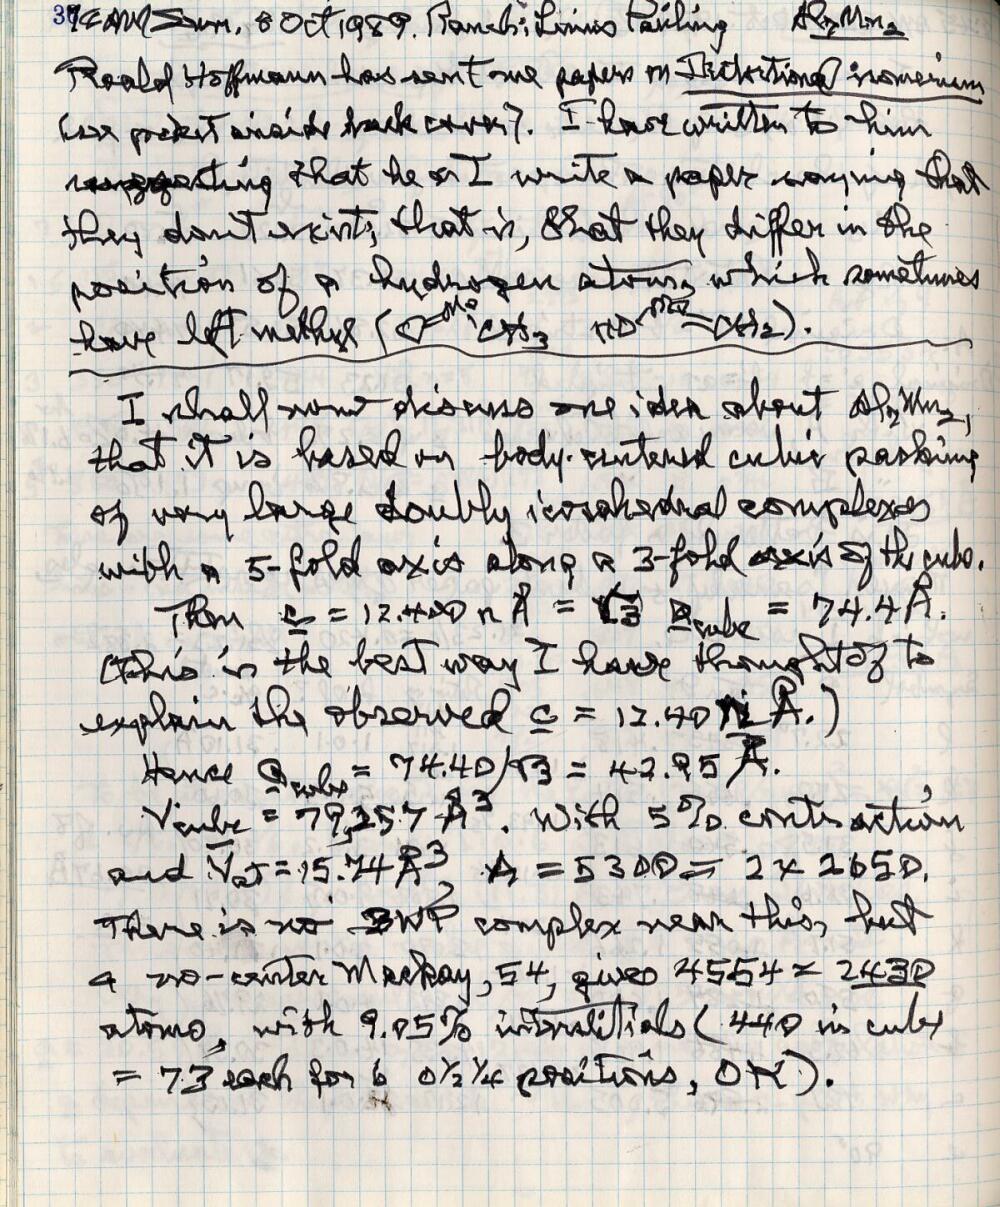 AM Sun, 8 Oct 1989. Ranch: Linus Pauling Al₂Mn₂
Roald Hoffmann has sent me papers on Distortional isomerism
(see pocket inside back cover). I have written to him
suggesting that he or I write a paper saying that
they don't exist; that is, that they differ in the
position of a hydrogen atom, which sometimes
have left methyl ( CH₃ HO =CH₂).
I shall now discuss one idea about Al₂Mn₂,
that it is based on body-centered cubic packing
of very large doubly icosahedral complexes
with a 5-fold axis along a 3-fold axis of the cube.
Then c = 12.400 n Å = √3 a cube = 74.4 Å.
(This is the best way I have thought of to
explain the observed c = 12.40 n Å.)
Hence a cube = 74.40/√3 = 42.95 Å.
V cube = 79,257 Å³. With 5% contraction
and V̄at = 15.74 Å³, A = 5300 = 2 × 2650.
There is no BWP complex near this, but
a no-center Mackay, 54, gives 45554 = 2430
atoms, with 9.05% interstitials (440 in cube
= 73 each for 6 0 ½ ¼ positions, OK).